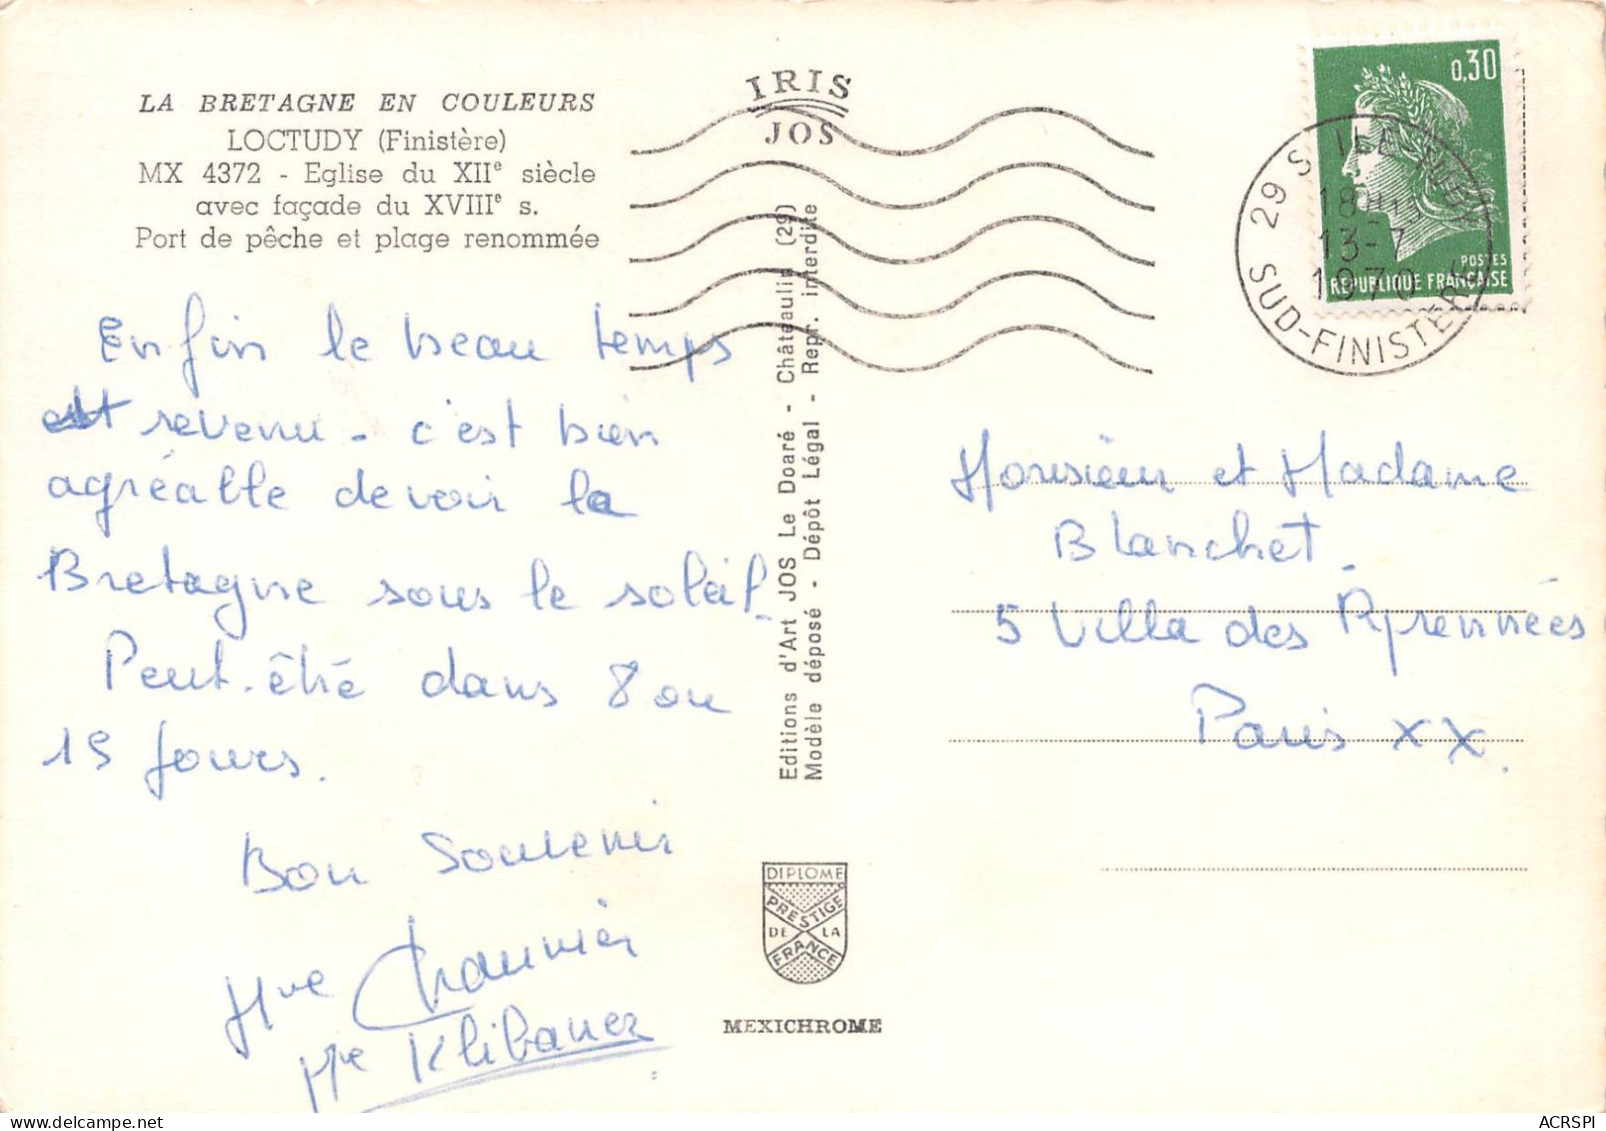 LA BRETAGNE EN COULEURS
LOCTUDY (Finistère)
MX 4372 - Eglise du XIIe siècle
avec façade du XVIIIe s.
Port de pêche et plage renommée
IRIS
JOS
0,30
POSTES
REPUBLIQUE FRANÇAISE
29 S ILE-TUDY
18H15
13-7
1970
SUD-FINISTÈRE
Enfin le beau temps
est revenu - c'est bien
agréable de voir la
Bretagne sous le soleil.
Peut-être dans 8 ou
15 jours.
Bon Souvenir
Mme Chaunier
Mme Klibaner
Editions d'Art JOS Le Doaré - Châteaulin (29)
Modèle déposé - Dépôt Légal - Repr. interdite
DIPLOME
PRESTIGE
DE LA
FRANCE
MEXICHROME
Monsieur et Madame
Blanchet.
5 Villa des Pyrennées
Paris XX.
ACRSPI